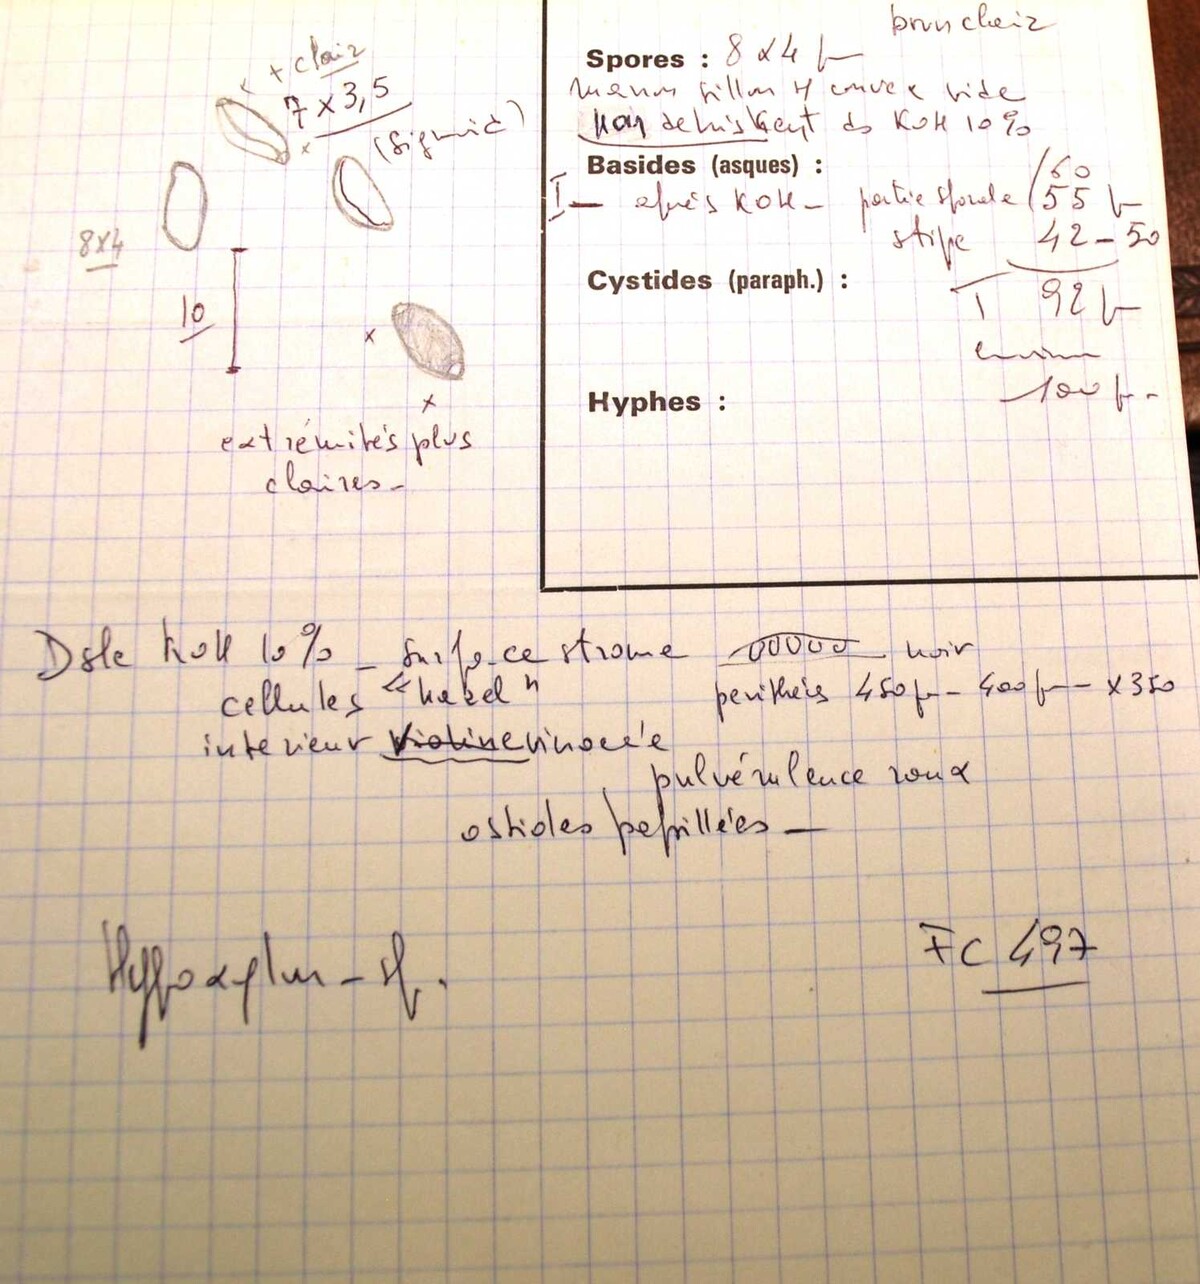 + clair
7 x 3,5
(sigmoid)
8x4
10
extrémités plus
claires -
brun clair
Spores : 8 x 4 µ
sillon convexe vide
non déhiscent ds KOH 10%
Basides (asques) :
60
I - après KOH - partie sporale 55 µ
stipe 42 - 50
Cystides (paraph.) :
T 92 µ
environ
100 µ -
Hyphes :
Dsle KOH 10% - surface strome noir
cellules "hazel" perithèces 450 µ - 400 µ - x 350
interieur violine vinacée
pulvérulence roux
ostioles papillées -
Hypoxylon - sp.
FC 497